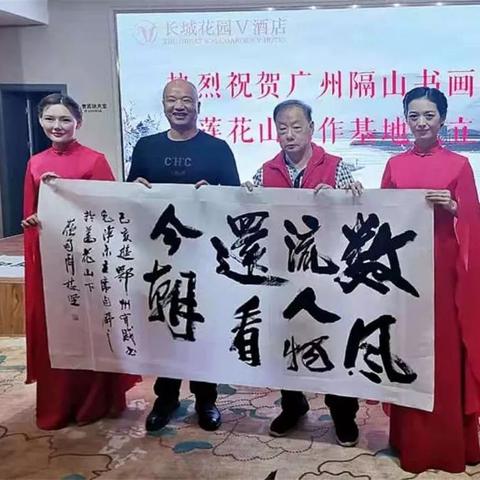 长城花园V酒店
THE GREAT WALL GARDEN V HOTEL
热烈祝贺广州隔山书画
莲花山 作基地
CHC
数风
流人物
還看
今朝
己亥進鄂州有感书
毛泽东主席
花山下